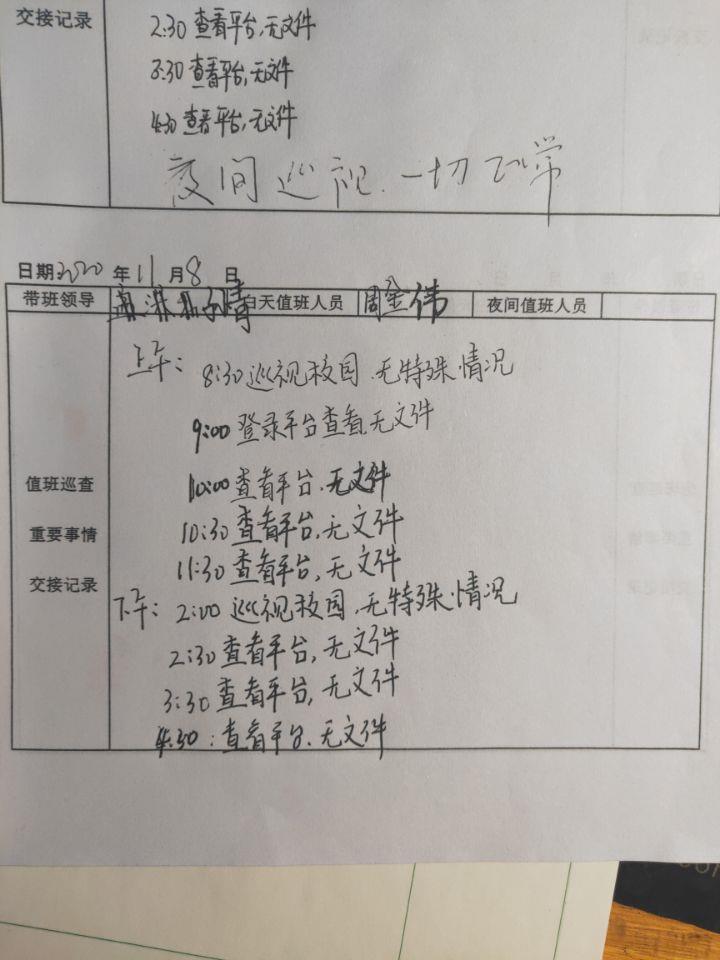 交接记录
2:30 查看平台,无文件
3:30 查看平台,无文件
4:30 查看平台,无文件
夜间巡视.一切正常
日期2020年11月8日
带班领导 白天值班人员 周金伟 夜间值班人员
上午: 8:30 巡视校园.无特殊情况
9:00 登录平台查看,无文件
值班巡查 10:00 查看平台.无文件
重要事情 10:30 查看平台,无文件
11:30 查看平台,无文件
交接记录
下午: 2:00 巡视校园,无特殊情况
2:30 查看平台,无文件
3:30 查看平台,无文件
4:30:查看平台.无文件